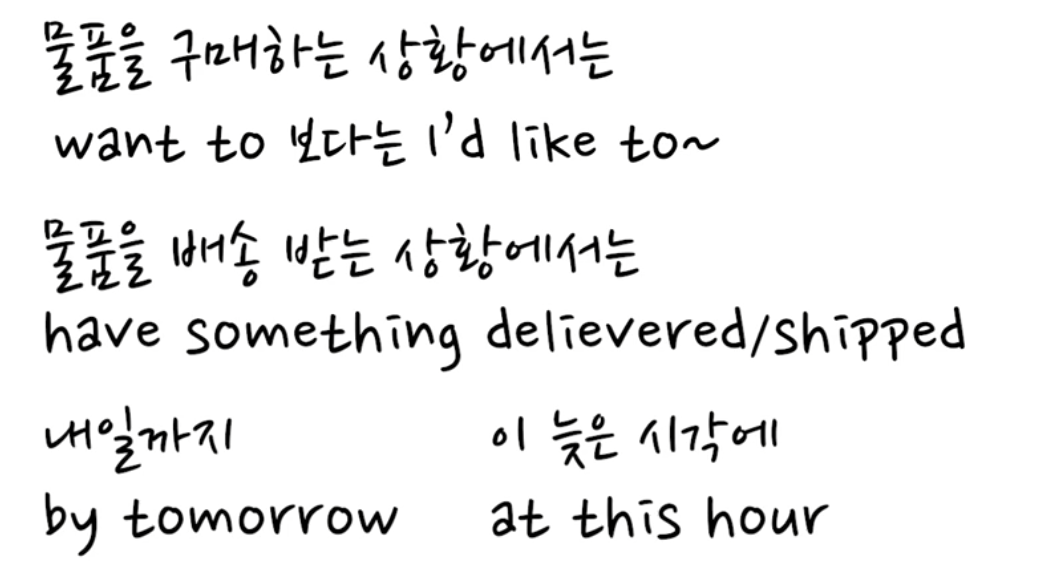 물품을 구매하는 상황에서는
want to 보다는 I'd like to~
물품을 배송 받는 상황에서는
have something delievered/shipped
내일까지 이 늦은 시각에
by tomorrow at this hour